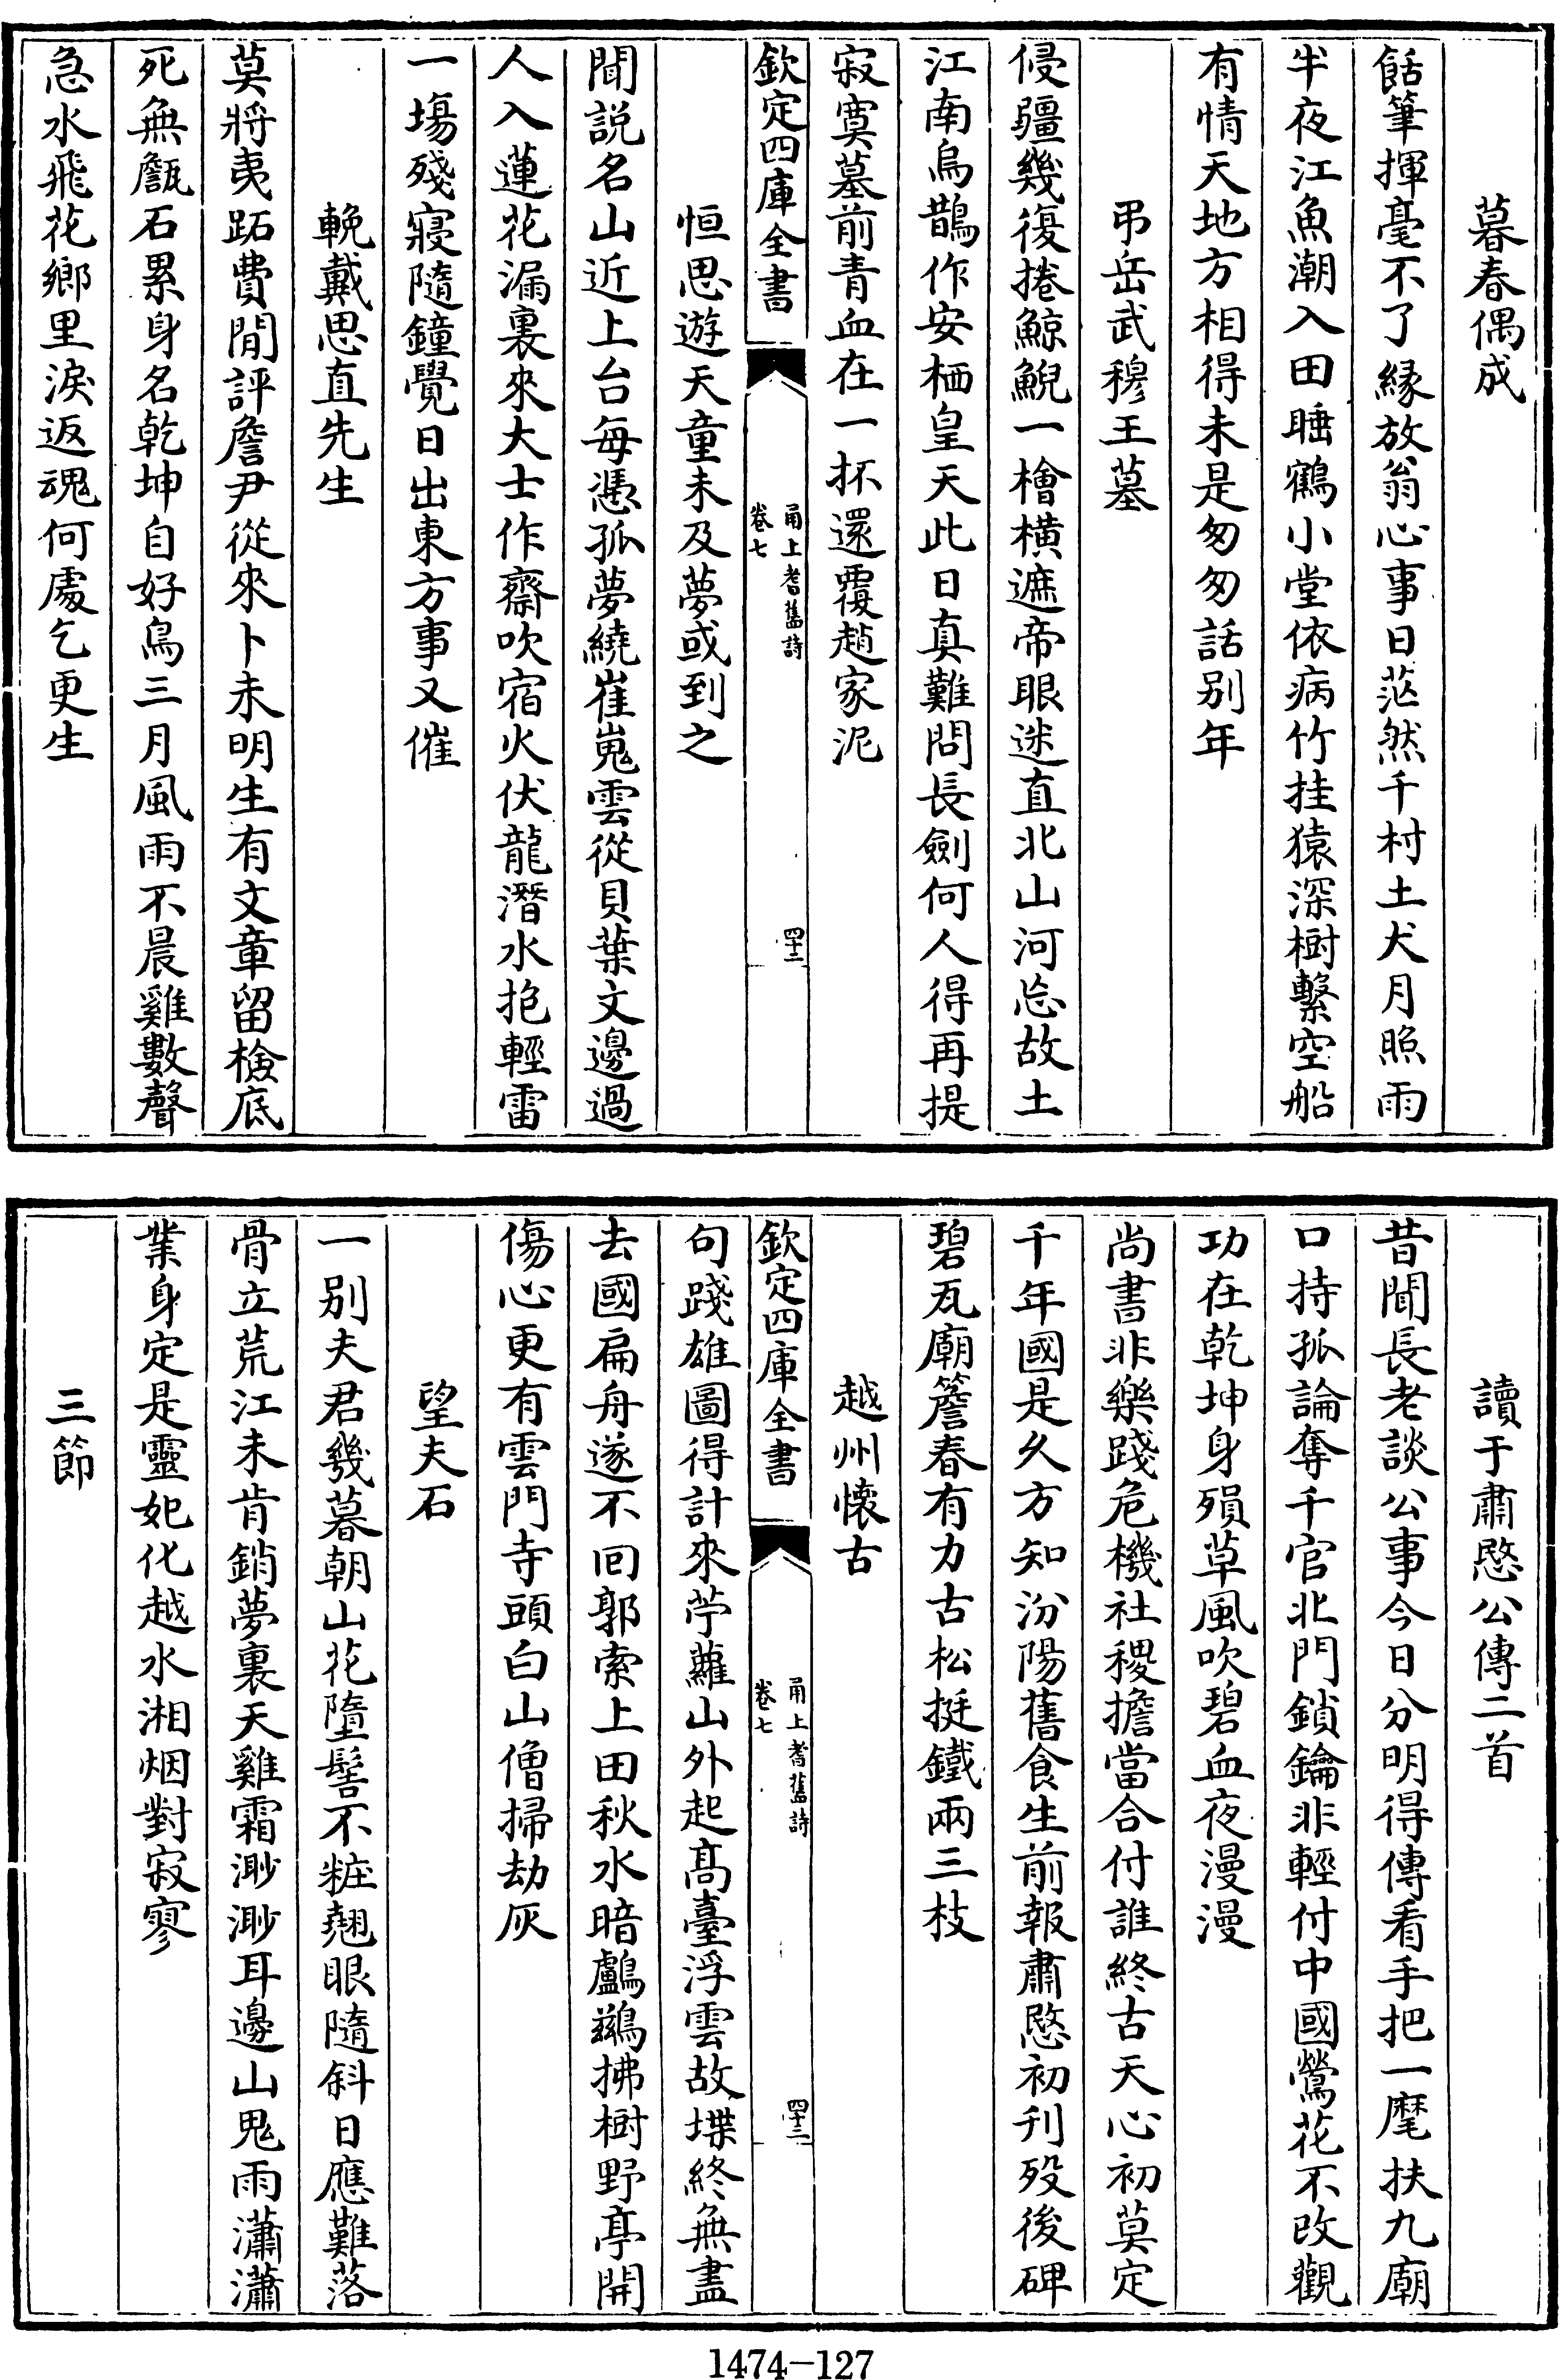 暮春偶成
餂筆揮毫不了緣放翁心事日茫然千村土犬月照雨
半夜江魚潮入田睡鶴小堂依病竹挂猿深樹繫空船
有情天地方相得未是匆匆話别年
弔岳武穆王墓
侵疆幾復捲鯨鯢一檜橫遮帝眼迷直北山河忘故土
江南烏鵲作安栖皇天此日真難問長劍何人得再提
寂寞墓前青血在一抔還覆趙家泥
欽定四庫全書
甬上耆舊詩
卷七
四十二
恒思遊天童未及夢或到之
聞説名山近上台每憑孤夢繞崔嵬雲從貝葉文邊過
人入蓮花漏裏來大士作齋吹宿火伏龍潛水抱輕雷
一塲殘寢隨鐘覺日出東方事又催
輓戴思直先生
莫將夷跖費閒評詹尹從來卜未明生有文章留檢底
死無甔石累身名乾坤自好鳥三月風雨不晨雞數聲
急水飛花鄉里淚返魂何處乞更生
讀于肅愍公傳二首
昔聞長老談公事今日分明得傳看手把一麾扶九廟
口持孤論奪千官北門鎖鑰非輕付中國鶯花不改觀
功在乾坤身殞草風吹碧血夜漫漫
尚書非樂踐危機社稷擔當合付誰終古天心初莫定
千年國是久方知汾陽舊食生前報肅愍初刊歿後碑
碧瓦廟簷春有力古松挺鐵兩三枝
越州懷古
欽定四庫全書
甬上耆舊詩
卷七
四十三
句踐雄圖得計來苧蘿山外起髙臺浮雲故堞終無盡
去國扁舟遂不回郭索上田秋水暗鸕鷀拂樹野亭開
傷心更有雲門寺頭白山僧掃劫灰
望夫石
一别夫君幾暮朝山花墮髻不粧翹眼隨斜日應難落
骨立荒江未肯銷夢裏天雞霜渺渺耳邊山鬼雨瀟瀟
業身定是靈妃化越水湘烟對寂寥
三節
1474-127